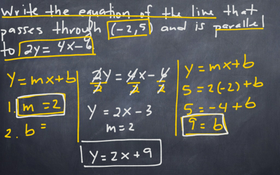 Write the equation of the line that
passes through (-2,5) and is parallel
to 2y = 4x - 6
y = mx + b
1. m = 2
2. b =
2y/2 = 4x/2 - 6/2
y = 2x - 3
m = 2
y = 2x + 9
y = mx + b
5 = 2(-2) + b
5 = -4 + b
9 = b